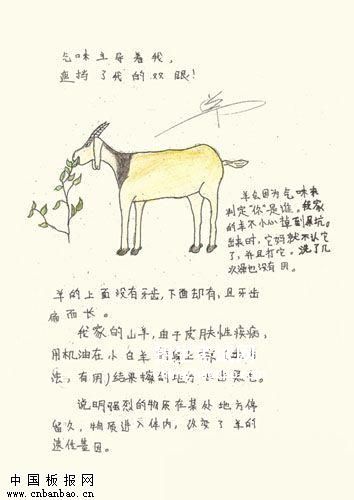 气味主导着我，
遮挡了我的双眼！
羊
羊会因为气味来
判定“你”是谁。我家
的羊不小心掉到黑坑。
出来时，它妈就不认它
了，并且打它，洗了几
次澡也没有用。
羊的上面没有牙齿，下面却有，且牙齿
扁而长。
我家的山羊，由于皮肤性疾病，
用机油在小白羊
法，有用）结果擦的地方
说明强烈的物质在某处地方停
留久，物质进入体内，改变了羊的
遗传基因。
中国板报网
www.cnbanbao.cn